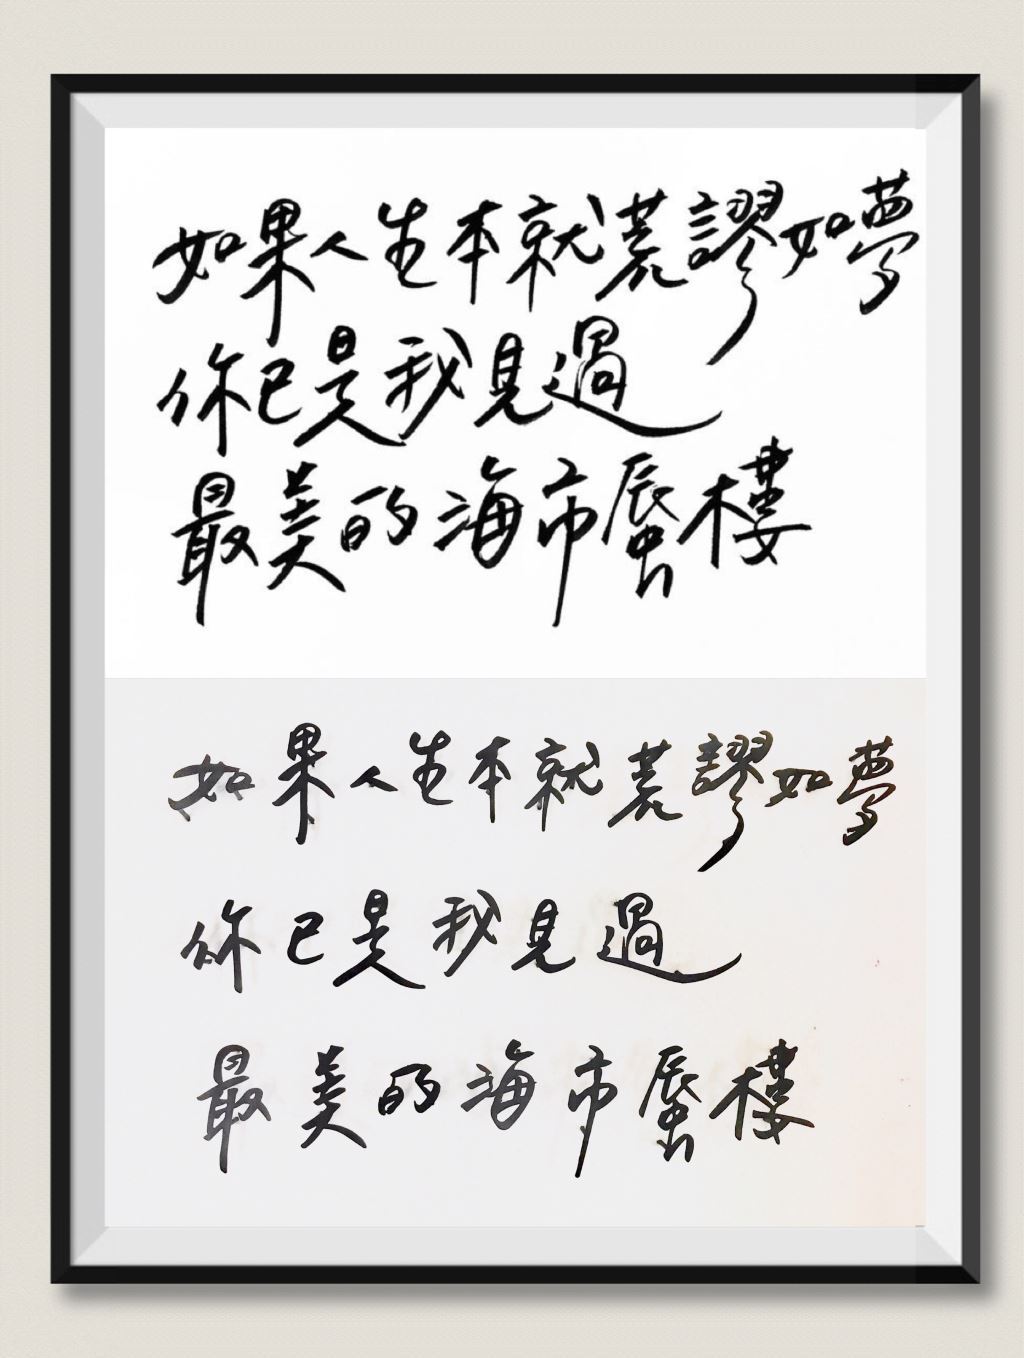 如果人生本就荒謬如夢
你已是我見過
最美的海市蜃樓
如果人生本就荒謬如夢
你已是我見過
最美的海市蜃樓